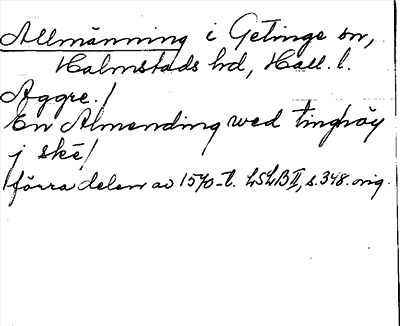 Allmänning i Getinge sn,
Halmstads hd, Hall. l.
Aggre./
En Almending wed tinghöy
j ske/
förra delen av 1570-t. LSLB II, s. 348. orig.